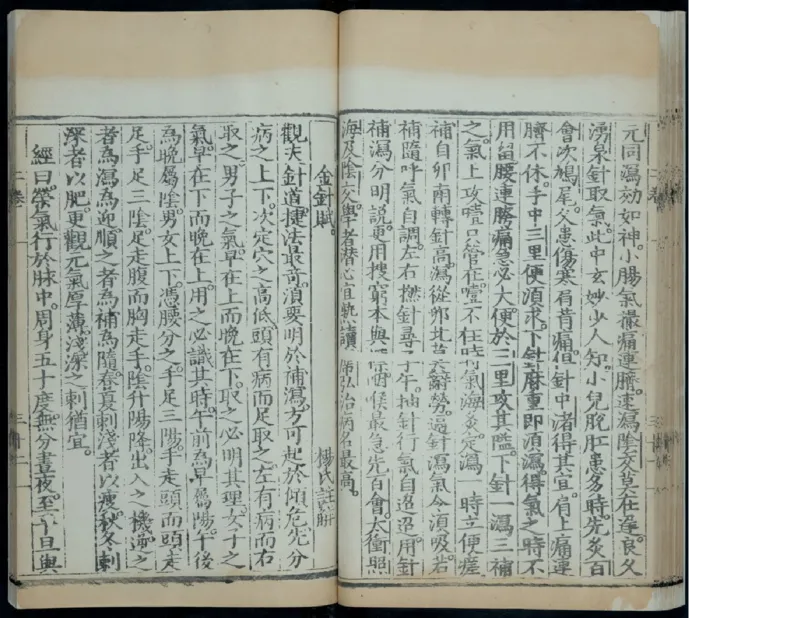 元同瀉効如神。小腸氣撮痛連臍。速瀉陰交莫在遲。良久
湧泉針取氣。此中玄妙少人知。小兒脫肛患多時。先灸百
會次鳩尾。久患傷寒肩背痛。但針中渚得其宜。肩上痛連
臍不休。手中三里便須求。下針麻重即須瀉。得氣之時不
用留。腰連胯痛急必大。便於三里攻其隘。下針一瀉三補
之。氣上攻噎只管在。噎不在時氣海灸。定瀉一時立便瘥
補自卯南轉針高。瀉從卯北莫辭勞。逼針瀉氣令須吸。若
補隨呼氣自調。左右撚針尋子午。抽針行氣自迢迢。用針
補瀉分明說。更用搜窮本與標。咽喉最急先百會。太衝照
海及陰交。學者潛心宜熟讀。席弘治病名最高。
金針賦。 楊氏註解
觀夫針道捷法最奇。須要明於補瀉。方可起於傾危。先分
病之上下。次定穴之高低。頭有病而足取之。左有病而右
取之。男子之氣。早在上而晚在下。取之必明其理。女子之
氣。早在下而晚在上。用之必識其時。午前為早屬陽。午後
為晚屬陰。男女上下。憑腰分之。手足三陽。手走頭而頭走
足。手足三陰。足走腹而胸走手。陰升陽降。出入之機。逆之
者為瀉為迎。順之者為補為隨。春夏刺淺者以瘦。秋冬刺
深者以肥。更觀元氣厚薄。淺深之刺猶宜。
經曰。榮氣行於脉中。周身五十度。無分晝夜。至平旦與